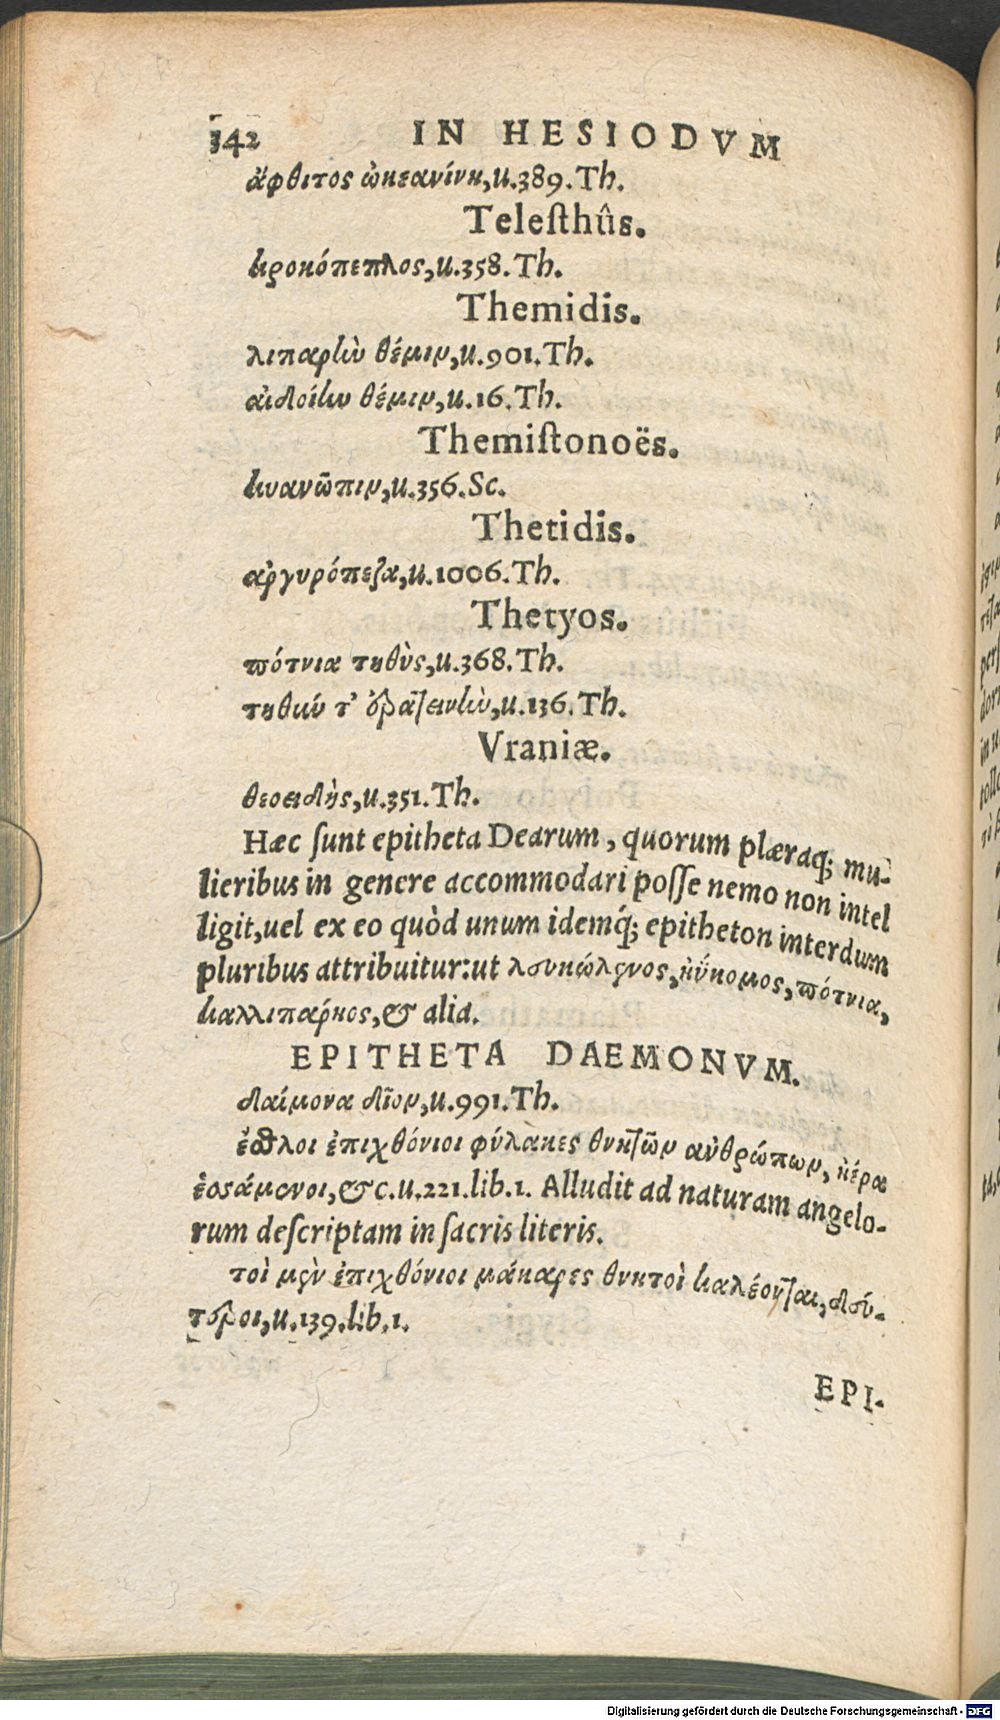 142 IN HESIODVM
ἄφθιτος ὠκεανίνη, u.389. Th.
Telesthûs.
κροκόπεπλος, u.358. Th.
Themidis.
λιπαρlὼ θέμιν, u.901. Th.
αἰδοίlω θέμιν, u.16. Th.
Themistonoës.
κυανῶπιν, u.356. Sc.
Thetidis.
αργυρόπεζα, u.1006. Th.
Thetyos.
πότνια τηθὺς, u.368. Th.
τηθιύ τ' ἐρατεινlὼ, u.136. Th.
Vraniæ.
θεοειδὴς, u.351. Th.
Hæc sunt epitheta Dearum, quorum plæraq; mu-
lieribus in genere accommodari posse nemo non intel
ligit, uel ex eo quòd unum idemq́; epitheton interdum
pluribus attribuitur: ut λευκώλενος, ηὔκομος, πότνια,
καλλιπάρηος, & alia.
EPITHETA DAEMONVM.
δαίμονα δῖον, u.991. Th.
ἐσθλοι ἐπιχθόνιοι φύλακες θνητῶν ανθρώπων, ἠέρα
ἑοσάμενοι, &c. u.221. lib. 1. Alludit ad naturam angelo-
rum descriptam in sacris literis.
τοὶ μὲν ἐπιχθόνιοι μάκαρες θνητοὶ καλέονται, δεύ-
τεροι, u.139. lib. 1.
EPI-
Digitalisierung gefördert durch die Deutsche Forschungsgemeinschaft - DFG